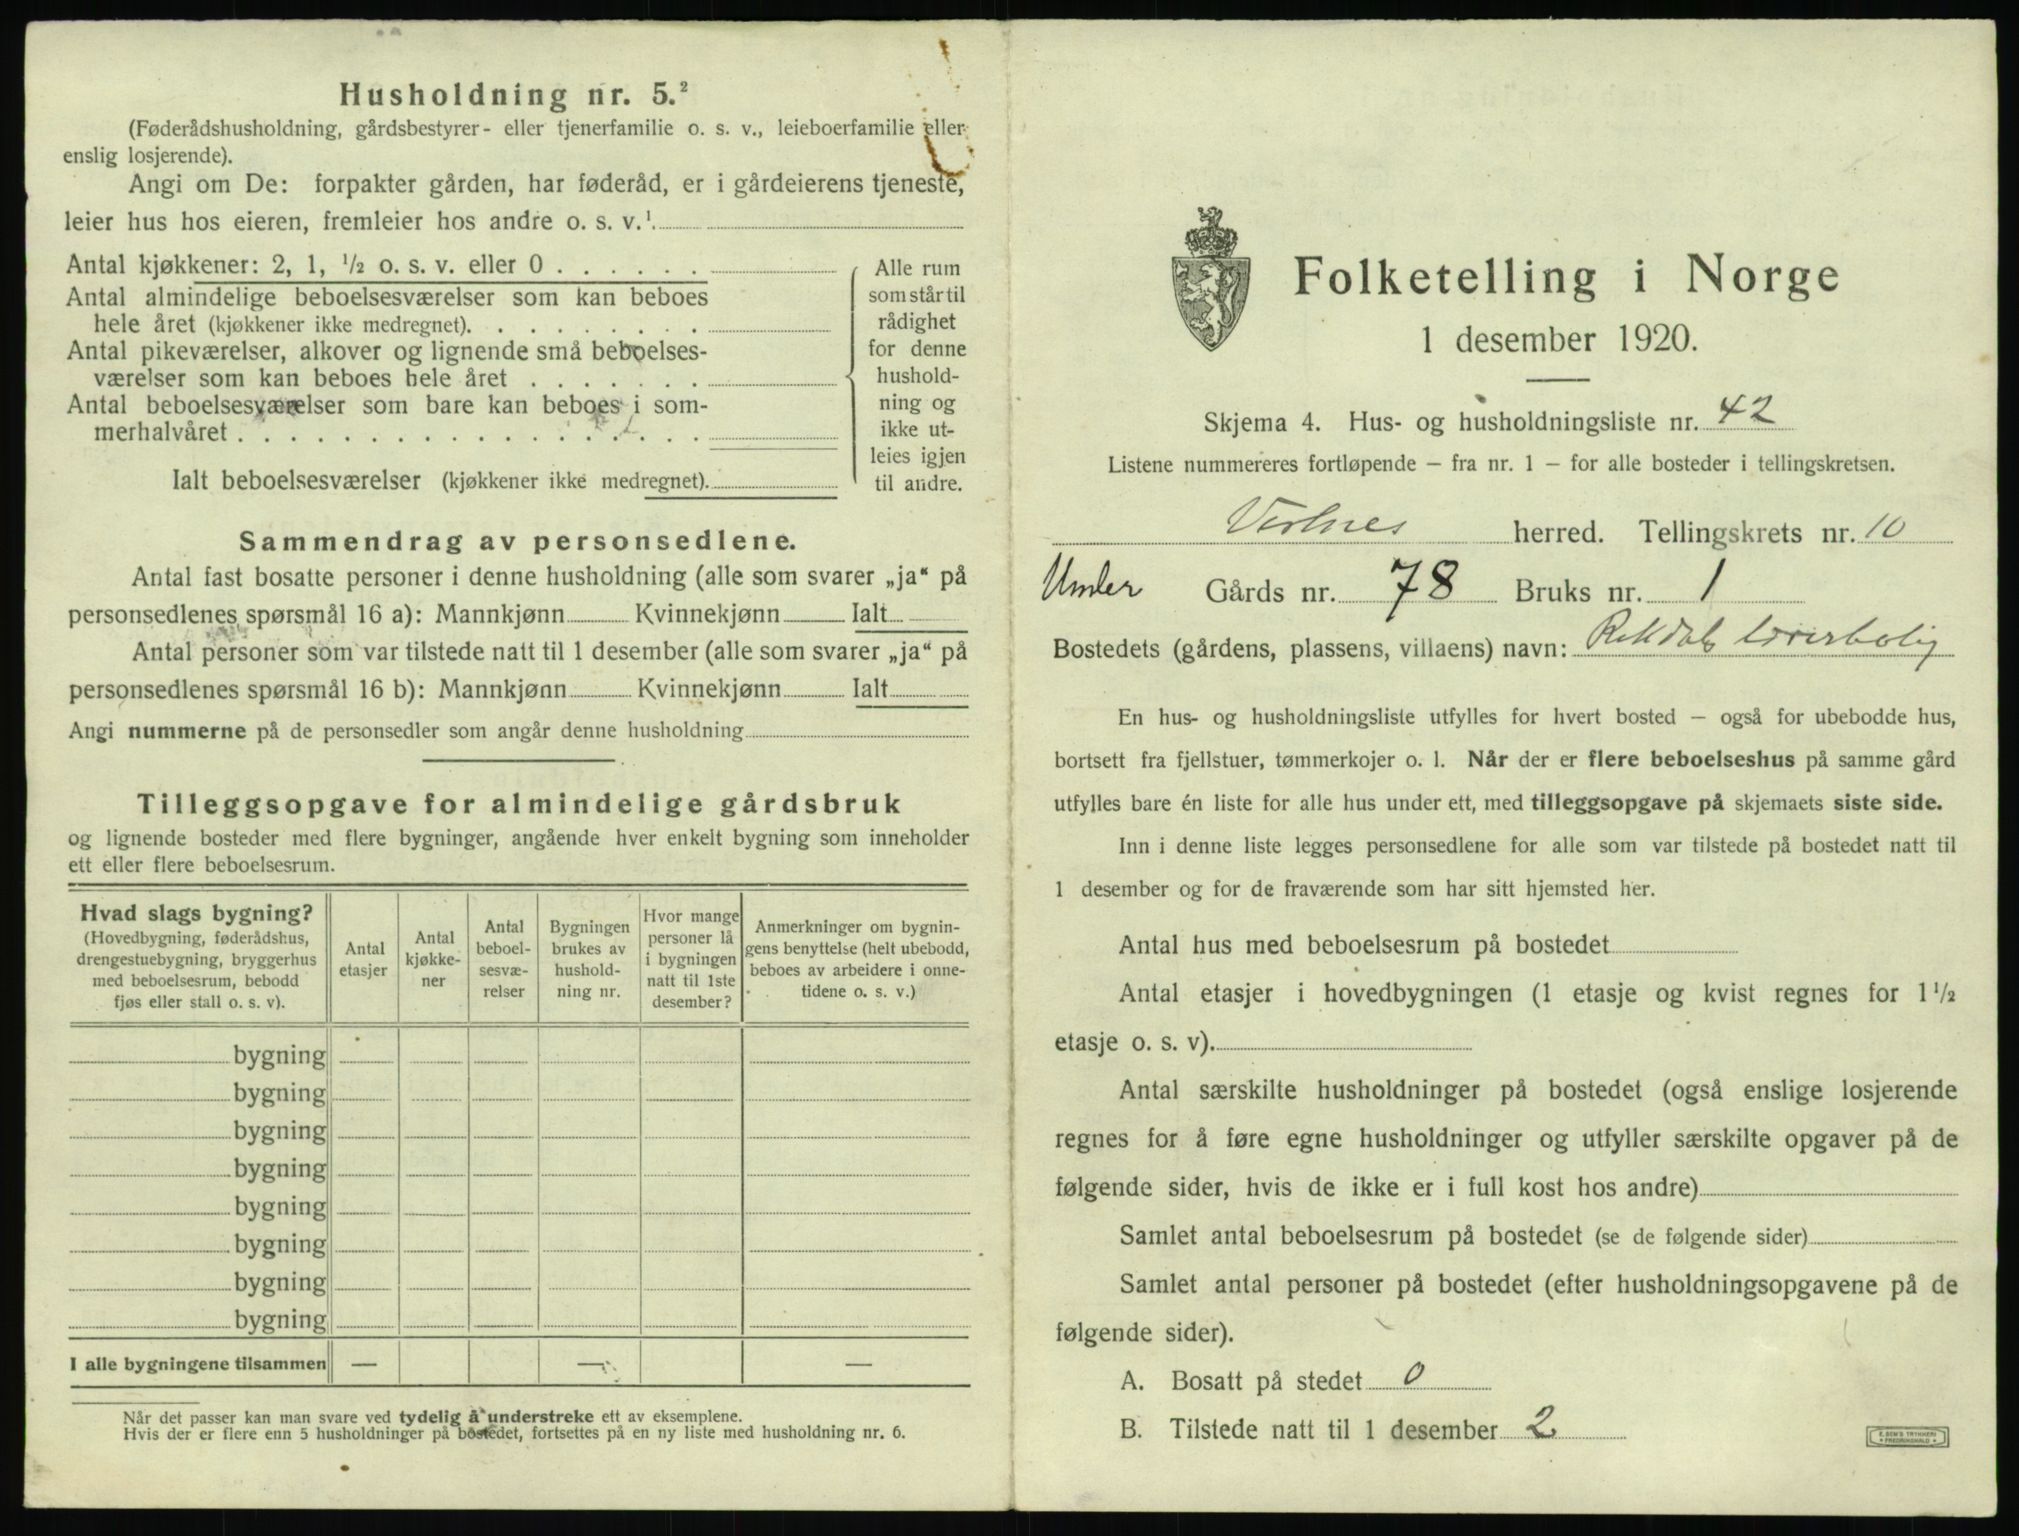 Husholdning nr. 5.²
(Føderådshusholdning, gårdsbestyrer- eller tjenerfamilie o. s. v., leieboerfamilie eller
enslig losjerende).
Angi om De: forpakter gården, har føderåd, er i gårdeierens tjeneste,
leier hus hos eieren, fremleier hos andre o. s. v.¹
Antal kjøkkener: 2, 1, ½ o. s. v. eller 0 . . . . . .
Antal almindelige beboelsesværelser som kan beboes
hele året (kjøkkener ikke medregnet). . . . . . . . .
Antal pikeværelser, alkover og lignende små beboelses-
værelser som kan beboes hele året . . . . . . .
Antal beboelsesværelser som bare kan beboes i som-
merhalvåret . . . . . . . . . . . . . . . . . .
Ialt beboelsesværelser (kjøkkener ikke medregnet).
Alle rum
som står til
rådighet
for denne
hushold-
ning og
ikke ut-
leies igjen
til andre.
Sammendrag av personsedlene.
Antal fast bosatte personer i denne husholdning (alle som svarer „ja“ på
personsedlenes spørsmål 16 a): Mannkjønn Kvinnekjønn Ialt
Antal personer som var tilstede natt til 1 desember (alle som svarer „ja“ på
personsedlenes spørsmål 16 b): Mannkjønn Kvinnekjønn Ialt
Angi nummerne på de personsedler som angår denne husholdning
Tilleggsopgave for almindelige gårdsbruk
og lignende bosteder med flere bygninger, angående hver enkelt bygning som inneholder
ett eller flere beboelsesrum.
Hvad slags bygning?
(Hovedbygning, føderådshus,
drengestuebygning, bryggerhus
med beboelsesrum, bebodd
fjøs eller stall o. s. v).
Antal
etasjer
Antal
kjøkke-
ner
Antal
beboel-
sesvæ-
relser
Bygningen
brukes av
hushold-
ning nr.
Hvor mange
personer lå
i bygningen
natt til 1ste
desember?
Anmerkninger om bygnin-
gens benyttelse (helt ubebodd,
beboes av arbeidere i onne-
tidene o. s. v.)
bygning
bygning
bygning
bygning
bygning
bygning
bygning
bygning
I alle bygningene tilsammen — — —
Når det passer kan man svare ved tydelig å understreke ett av eksemplene.
Hvis der er flere enn 5 husholdninger på bostedet, fortsettes på en ny liste med husholdning nr. 6.
Folketelling i Norge
1 desember 1920.
Skjema 4. Hus- og husholdningsliste nr. 42
Listene nummereres fortløpende – fra nr. 1 – for alle bosteder i tellingskretsen.
Vestnes herred. Tellingskrets nr. 10
Under Gårds nr. 78 Bruks nr. 1
Bostedets (gårdens, plassens, villaens) navn: Rekdals lærerbolig
En hus- og husholdningsliste utfylles for hvert bosted – også for ubebodde hus,
bortsett fra fjellstuer, tømmerkojer o. l. Når der er flere beboelseshus på samme gård
utfylles bare én liste for alle hus under ett, med tilleggsopgave på skjemaets siste side.
Inn i denne liste legges personsedlene for alle som var tilstede på bostedet natt til
1 desember og for de fraværende som har sitt hjemsted her.
Antal hus med beboelsesrum på bostedet
Antal etasjer i hovedbygningen (1 etasje og kvist regnes for 1½
etasje o. s. v).
Antal særskilte husholdninger på bostedet (også enslige losjerende
regnes for å føre egne husholdninger og utfyller særskilte opgaver på de
følgende sider, hvis de ikke er i full kost hos andre)
Samlet antal beboelsesrum på bostedet (se de følgende sider)
Samlet antal personer på bostedet (efter husholdningsopgavene på de
følgende sider).
A. Bosatt på stedet 0
B. Tilstede natt til 1 desember 2
E. SEM'S TRYKKERI
• FREDRIKSHALD •